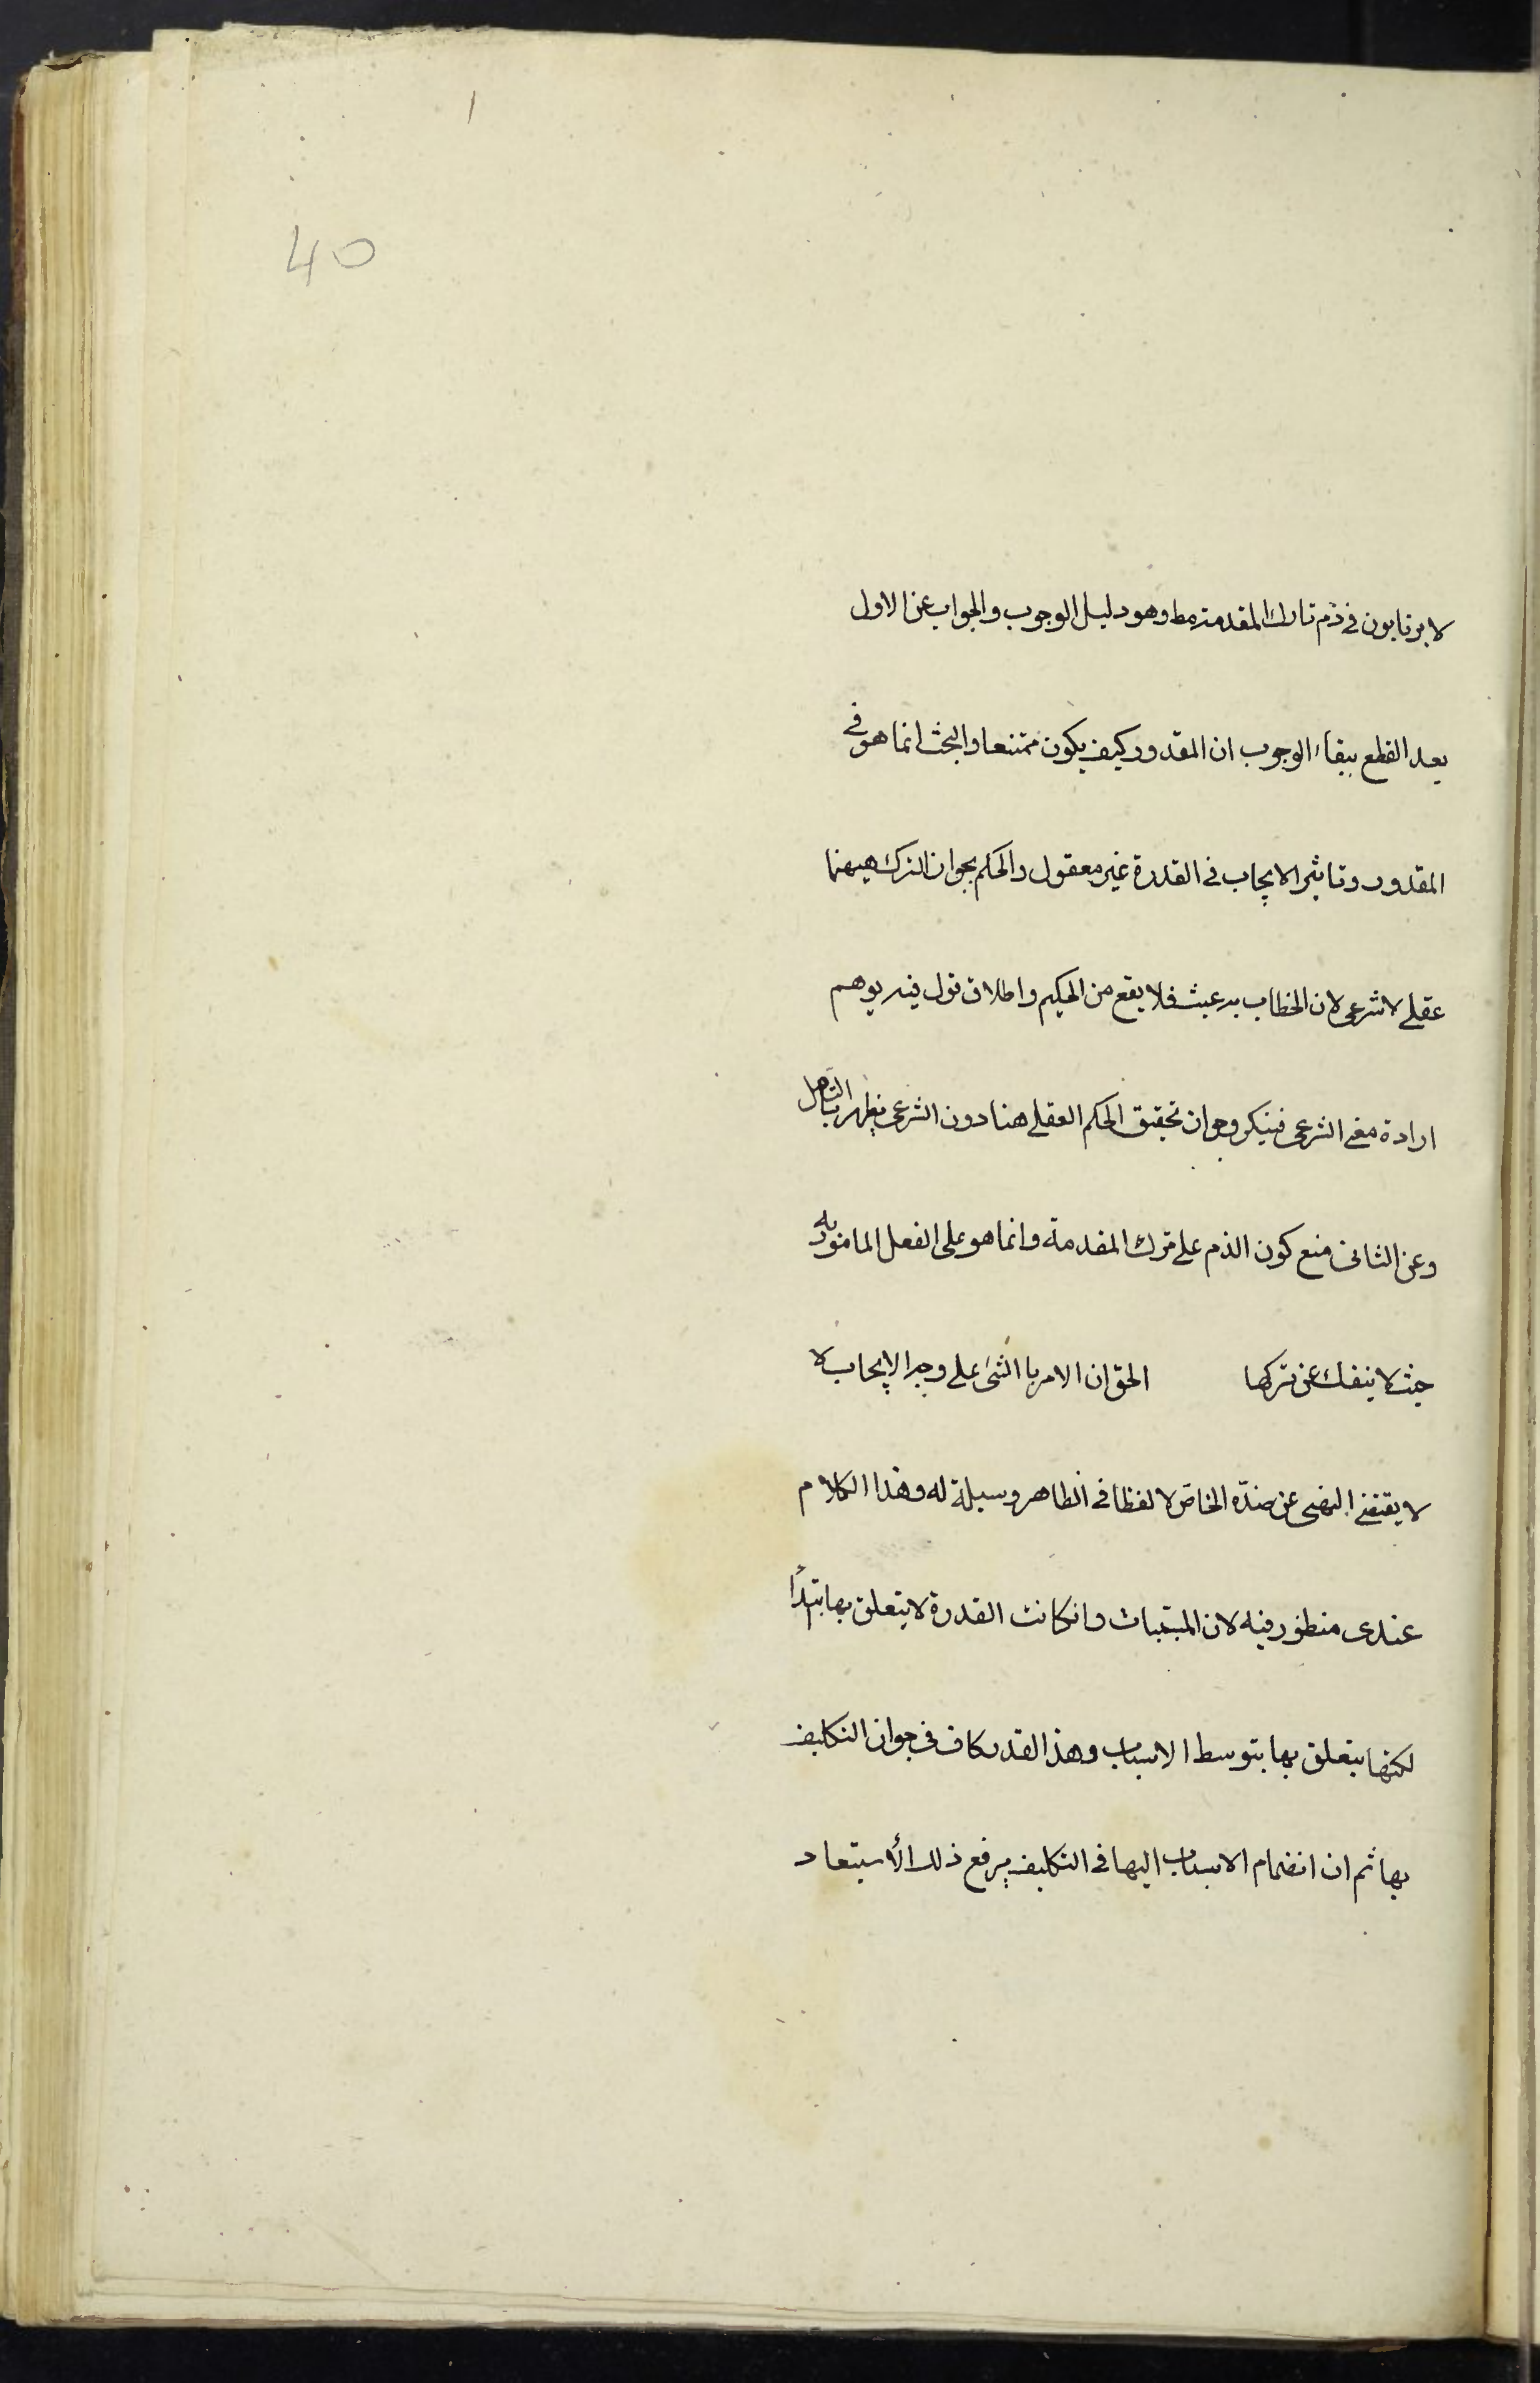 40
لا يرتابون في ذم تارك المقدمة مط وهو دليل الوجوب والجواب عن الاول
بعد القطع ببقاء الوجوب ان المقدور كيف يكون ممتنعا والبحث انما هو في
المقدور وتاثير الايجاب في القدرة غير معقول والحكم بجواز الترك هيهنا
عقلي لا شرعي لان الخطاب به عبث فلا يقع من الحكيم واطلاق قول فيه يوهم
ارادة معنى الشرعي فينكر وجواز تحقيق الحكم العقلي هنا دون الشرعي يظهر بالتامل
وعن الثاني منع كون الذم على ترك المقدمة وانما هو على الفعل المامور به
حيث لا ينفك عن تركها الحق ان الامر با الشئ على وجه الايجاب لا
لا يقتضي النهي عن ضده الخاص لا لفظا في الظاهر وسيلة له وهذا الكلام
عندى منظور فيه لان المسببات وانكانت القدرة لا يتعلق بها ابتدأ
لكنها يتعلق بها بتوسط الاسباب وهذا القدر كاف في جواز التكليف
بها ثم ان انضمام الاسباب اليها في التكليف يرفع ذلك الأستبعاد